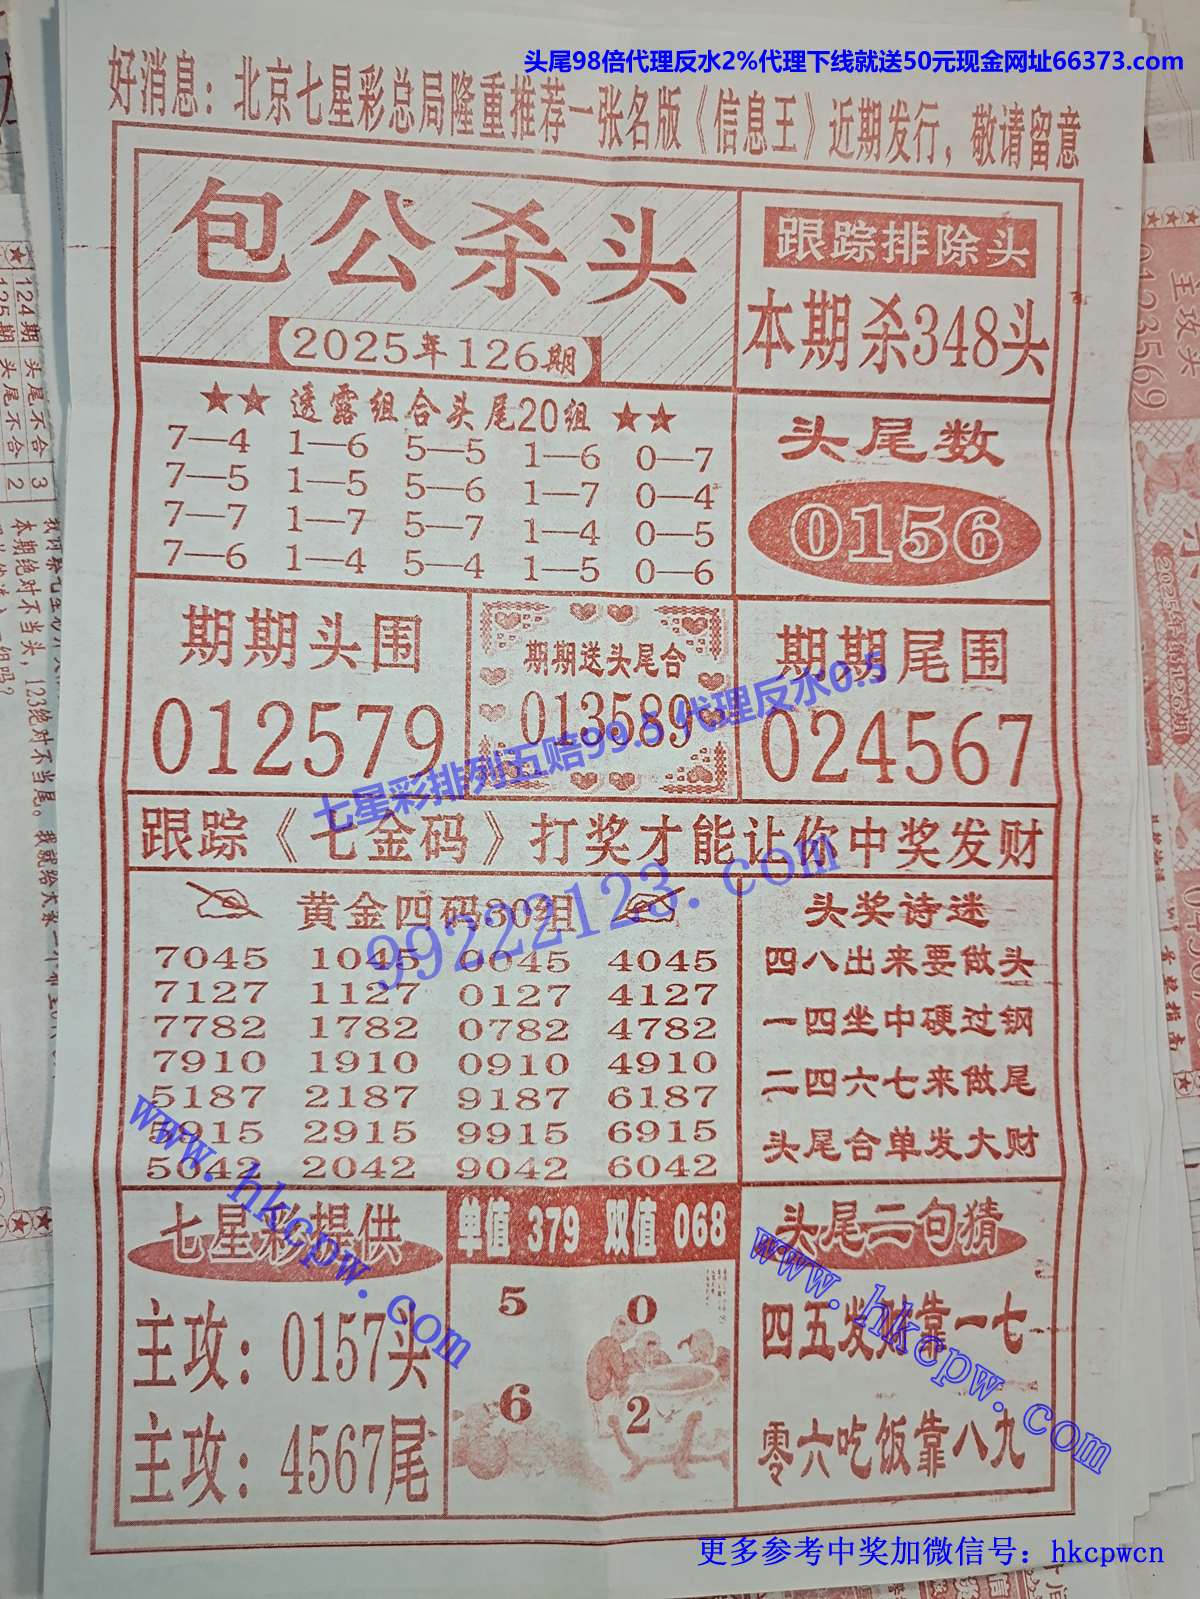 头尾98倍代理反水2%代理下线就送50元现金网址66373.com
好消息：北京七星彩总局隆重推荐一张名版《信息王》近期发行，敬请留意
包公杀头
2025年126期
跟踪排除头
本期杀348头
★★ 透露组合头尾20组 ★★
7—4 1—6 5—5 1—6 0—7
7—5 1—5 5—6 1—7 0—4
7—7 1—7 5—7 1—4 0—5
7—6 1—4 5—4 1—5 0—6
头尾数
0156
期期头围
012579
期期送头尾合
013589
期期尾围
024567
七星彩排列五赔99.5 代理反水0.5
跟踪《七金码》打奖才能让你中奖发财
黄金四码30组
99222123.com
7045 1045 0045 4045
7127 1127 0127 4127
7782 1782 0782 4782
7910 1910 0910 4910
5187 2187 9187 6187
5915 2915 9915 6915
5042 2042 9042 6042
头奖诗迷
四八出来要做头
一四坐中硬过钢
二四六七来做尾
头尾合单发大财
www.hkcpw.com
七星彩提供
主攻：0157头
主攻：4567尾
单值 379 双值 068
5 0
6 2
头尾二句猜
四五发财靠一七
零六吃饭靠八九
www.hkcpw.com
更多参考中奖加微信号：hkcpwcn
124期 头尾不合 3
125期 头尾不合 2
本期绝对不当头，123绝对不当尾。
主攻头
0123569
2025年第126期